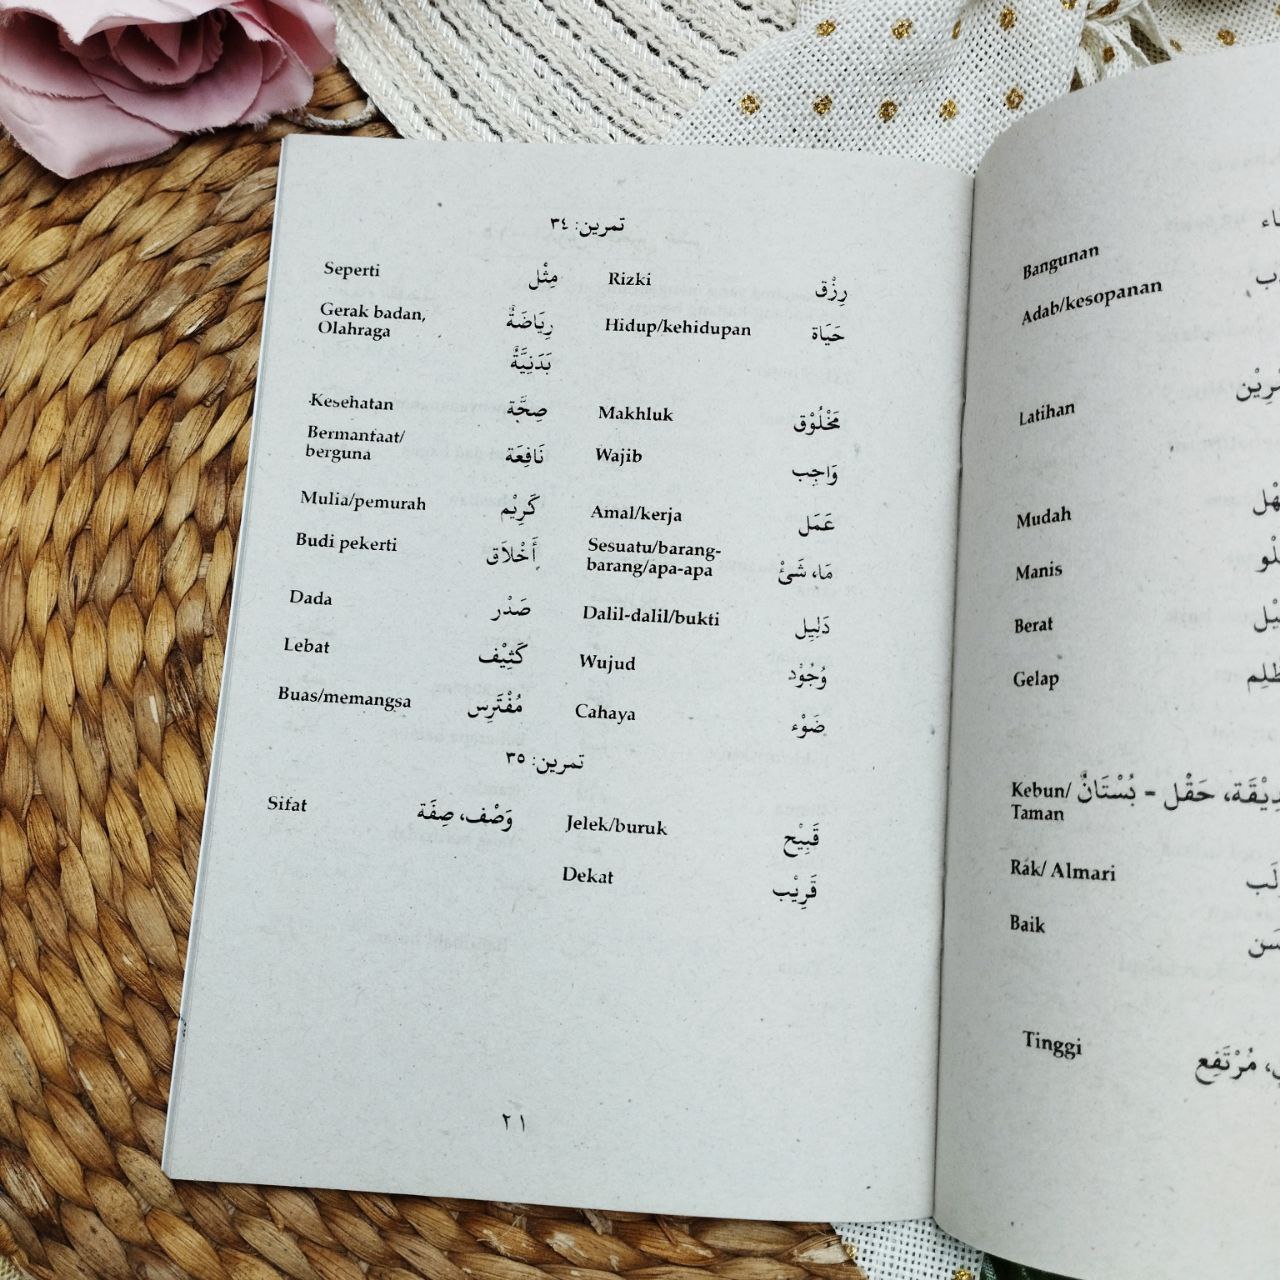 تمرين: ٣٤
Seperti مِثْل Rizki رِزْق
Gerak badan, رِيَاضَةٌ Hidup/kehidupan حَيَاة
Olahraga بَدَنِيَّةٌ
Kesehatan صِحَّة Makhluk مَخْلُوْق
Bermanfaat/
berguna نَافِعَة Wajib وَاجِب
Mulia/pemurah كَرِيْم Amal/kerja عَمَل
Budi pekerti أَخْلاَق Sesuatu/barang-
barang/apa-apa مَا، شَئْ
Dada صَدْر Dalil-dalil/bukti دَلِيل
Lebat كَثِيْف Wujud وُجُوْد
Buas/memangsa مُفْتَرِس Cahaya ضَوْء
تمرين: ٣٥
Sifat وَصْف، صِفَة Jelek/buruk قَبِيْح
Dekat قَرِيْب
٢١
Bangunan
Adab/kesopanan
Latihan
Mudah
Manis
Berat
Gelap
Kebun/ حَقْل = بُسْتَانٌ
Taman
Rak/ Almari
Baik
Tinggi مُرْتَفِع